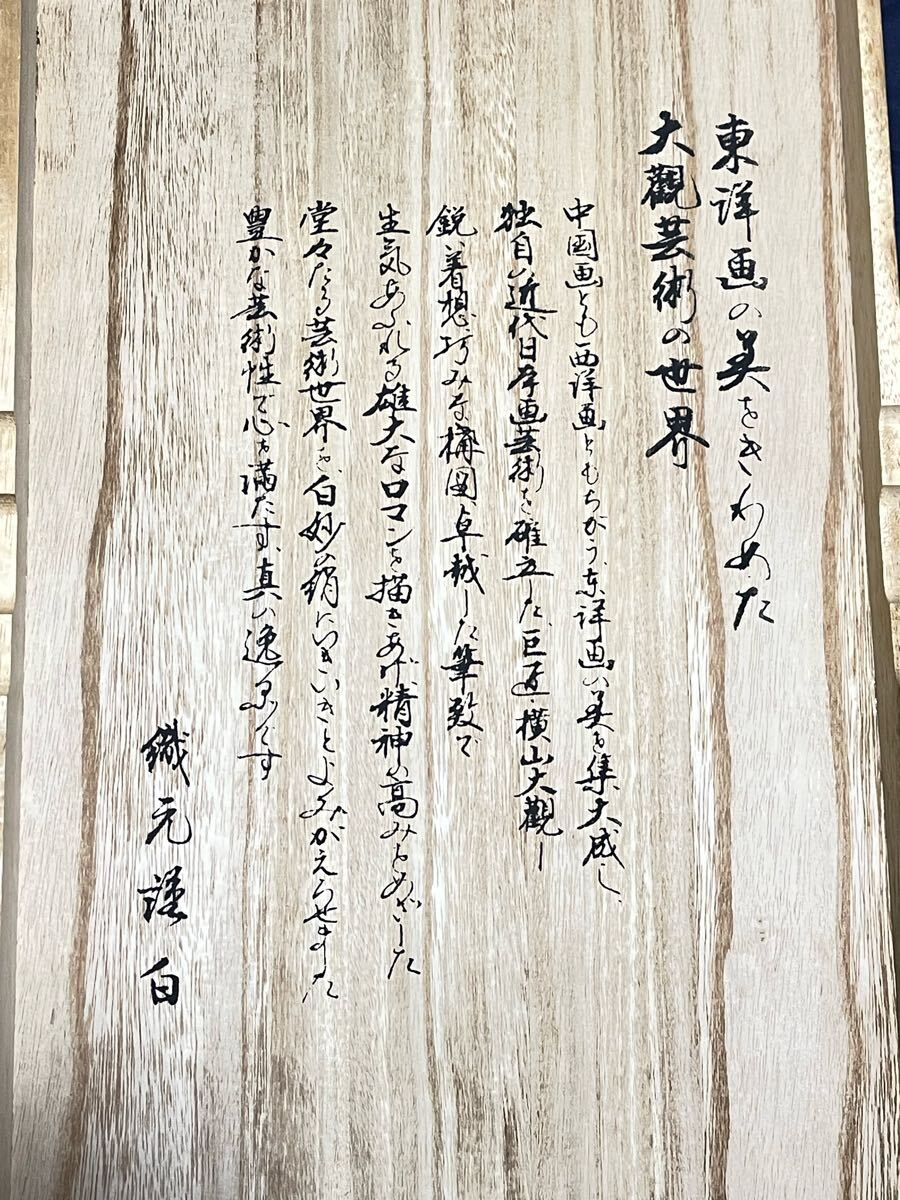 東洋画の美をきわめた
大觀芸術の世界
中国画とも西洋画ともちがう、東洋画の美を集大成し、
独自の近代日本画芸術を確立した、巨匠・横山大觀ー
鋭い着想、巧みな構図、卓越した筆致で
生気あふれる雄大なロマンを描きあげ、精神の高みをめざした
堂々たる芸術世界を、白妙の絹にいきいきとよみがえらせました
豊かな芸術性で心を満たす、真の逸品です
織元謹白